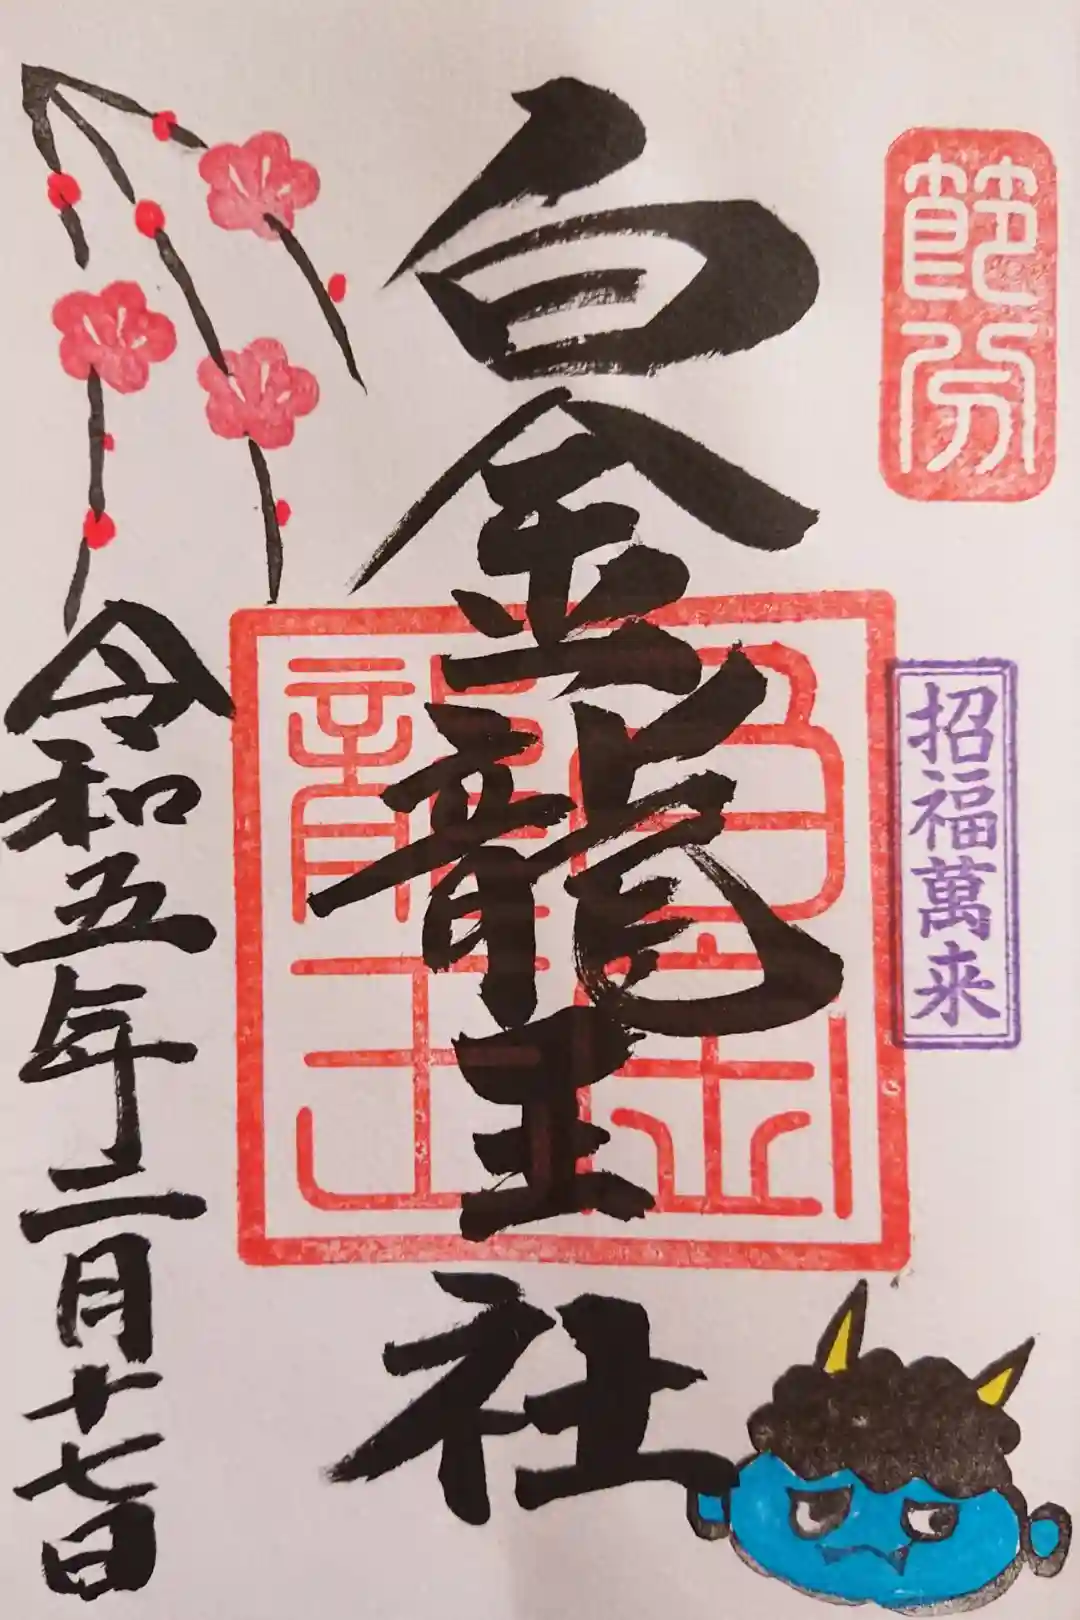 節分
招福萬来
白金龍王社
白金
龍王
令和五年二月十七日